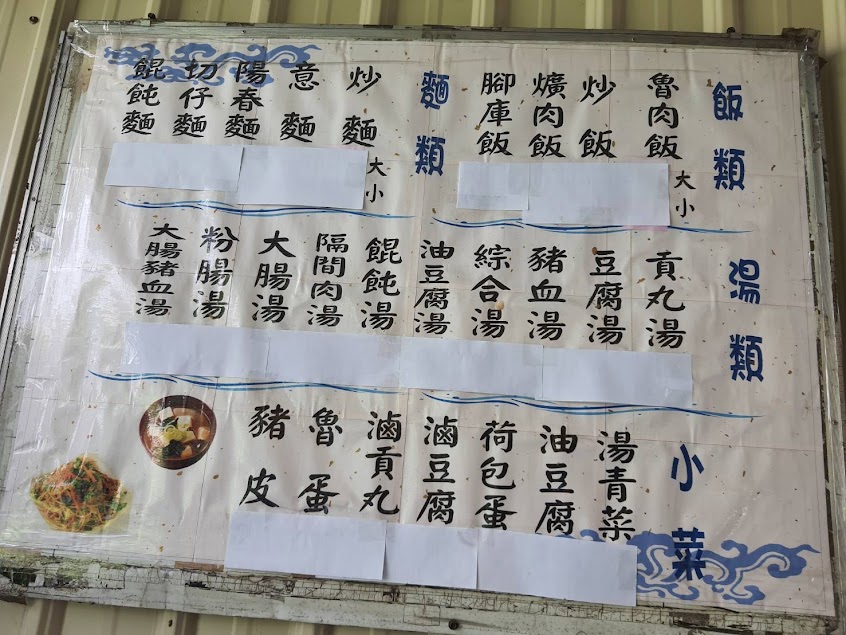 飯類
魯肉飯
大小
炒飯
爌肉飯
腳庫飯
麵類
炒麵
大小
意麵
陽春麵
切仔麵
餛飩麵
湯類
貢丸湯
豆腐湯
豬血湯
綜合湯
油豆腐湯
餛飩湯
隔間肉湯
大腸湯
粉腸湯
大腸豬血湯
小菜
湯青菜
油豆腐
荷包蛋
滷豆腐
滷貢丸
魯蛋
豬皮